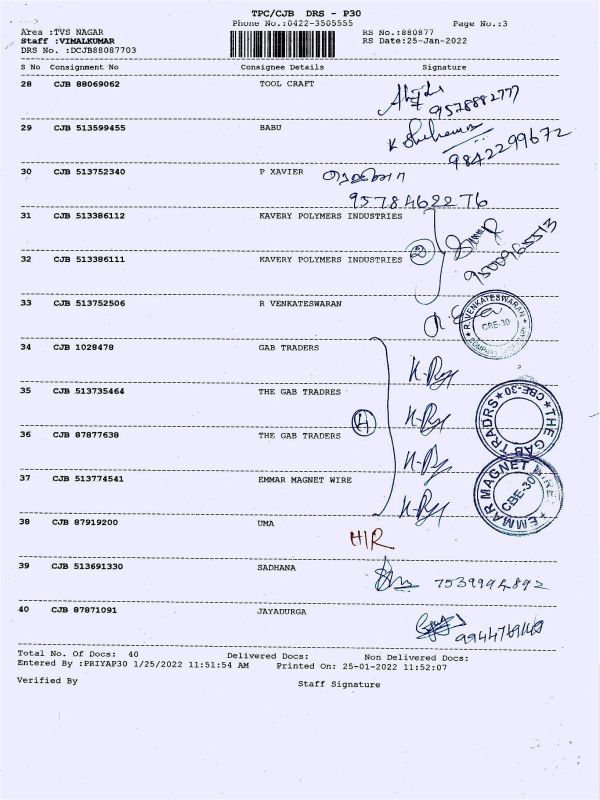 TPC/CJB DRS - P30
Phone No.:0422-3505555 Page No.:3
Area :TVS NAGAR RS No.:880877
Staff :VIMALKUMAR RS Date:25-Jan-2022
DRS No. :DCJB88087703
S No Consignment No Consignee Details Signature
28 CJB 88069062 TOOL CRAFT
9578882777
29 CJB 513599455 BABU
9842299672
30 CJB 513752340 P XAVIER
9578462276
31 CJB 513386112 KAVERY POLYMERS INDUSTRIES
2
9500965513
32 CJB 513386111 KAVERY POLYMERS INDUSTRIES
33 CJB 513752506 R VENKATESWARAN
R.VENKATESWARAN
CBE-30
34 CJB 1028478 GAB TRADERS
35 CJB 513735464 THE GAB TRADRES
THE GAB TRADRS
CBE-30
36 CJB 87877638 THE GAB TRADERS
37 CJB 513774541 EMMAR MAGNET WIRE
EMMAR MAGNET WIRE
CBE-30
38 CJB 87919200 UMA
H/R
39 CJB 513691330 SADHANA
7539994892
40 CJB 87871091 JAYADURGA
Total No. Of Docs: 40 Delivered Docs: Non Delivered Docs:
Entered By :PRIYAP30 1/25/2022 11:51:54 AM Printed On: 25-01-2022 11:52:07
Verified By Staff Signature